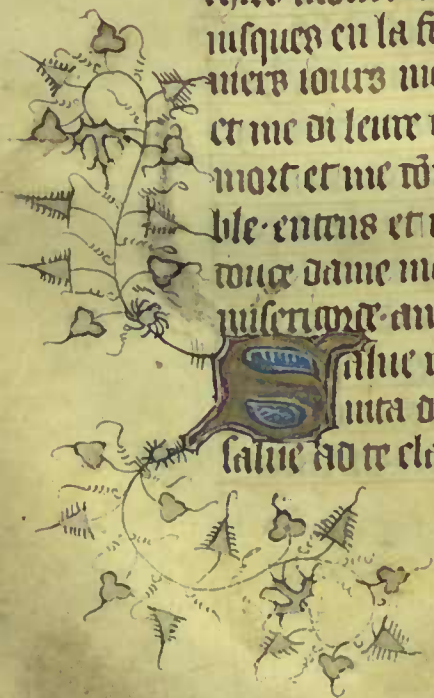 iusques en la fi
niers iours me
et me di leure
mort et me cõ
ble · entens et
douce dame me
misericorde · am
Salue
uita d
salue ad te cla